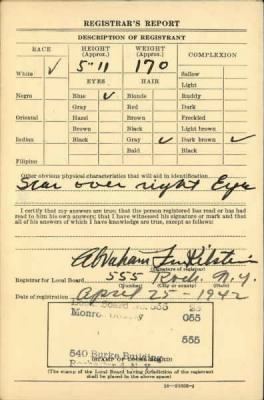 REGISTRAR'S REPORT
DESCRIPTION OF REGISTRANT
RACE HEIGHT (Approx.) WEIGHT (Approx.) COMPLEXION
White ✓ 5-11 170 Sallow
EYES HAIR Light
Negro Blue ✓ Blonde Ruddy
Gray Red Dark
Oriental Hazel Brown Freckled
Brown Black Light brown
Indian Black Gray ✓ Dark brown ✓
Bald Black
Filipino
Other obvious physical characteristics that will aid in identification
Scar over right Eye
I certify that my answers are true; that the person registered has read or has had read to him his own answers; that I have witnessed his signature or mark and that all of his answers of which I have knowledge are true, except as follows:
Abraham
(Signature of registrar)
Registrar for Local Board 555 Roch. N.Y.
(Number) (City or county) (State)
Date of registration April 25-1942
Monroe 055
555
540 Burke Building
(STAMP OF LOCAL BOARD)
(The stamp of the Local Board having jurisdiction of the registrant shall be placed in the above space)